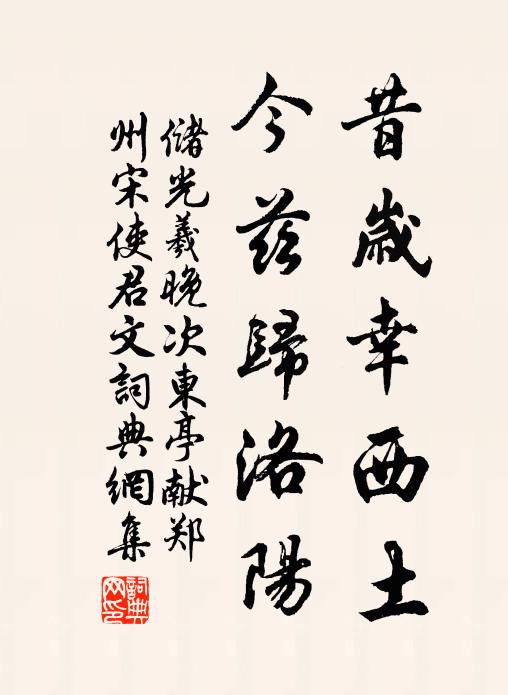 昔歲幸西土
今茲歸洛陽
儲光羲晚次東亭献郑
州宋使君文詞典網集
詞典
文印